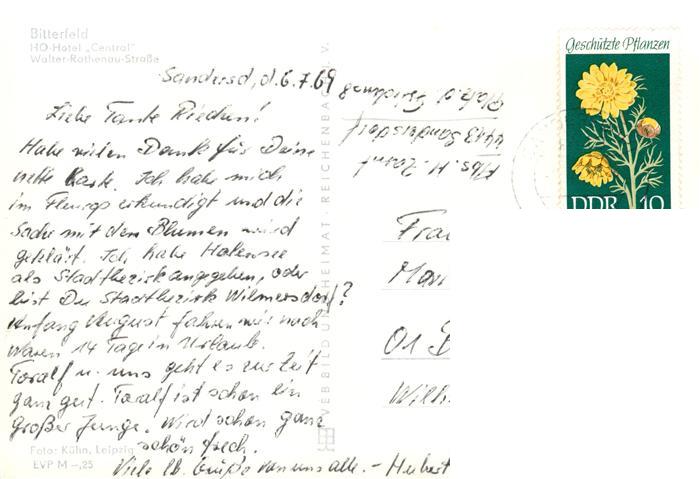 Bitterfeld
HO-Hotel „Central"
Walter-Rathenau-Straße
Sandersd, d. 6.7.69
Liebe Tante Riedchen!
Habe vielen Dank für Deine
nette Karte. Ich habe mich
im Fleurop erkundigt und die
Sache mit dem Blumen wird
geklärt. Ich habe Halensee
als Stadtbezirk angegeben, oder
bist Du Stadtbezirk Wilmersdorf?
Anfang August fahren wir nach
Waren 14 Tage in Urlaub.
Toralf u. uns geht es zur Zeit
ganz gut. Toralf ist schon ein
großer Junge. Wird schon ganz
schön frech.
Viele lb. Grüße von uns alle. - Herbert
Foto: Kühn, Leipzig
EVP M -,25
VEB BILD U. HEIMAT · REICHENBACH I. V.
Abs. H.
4443 Sandersdorf
Geschützte Pflanzen
DDR 10
Frau
01
Wilh